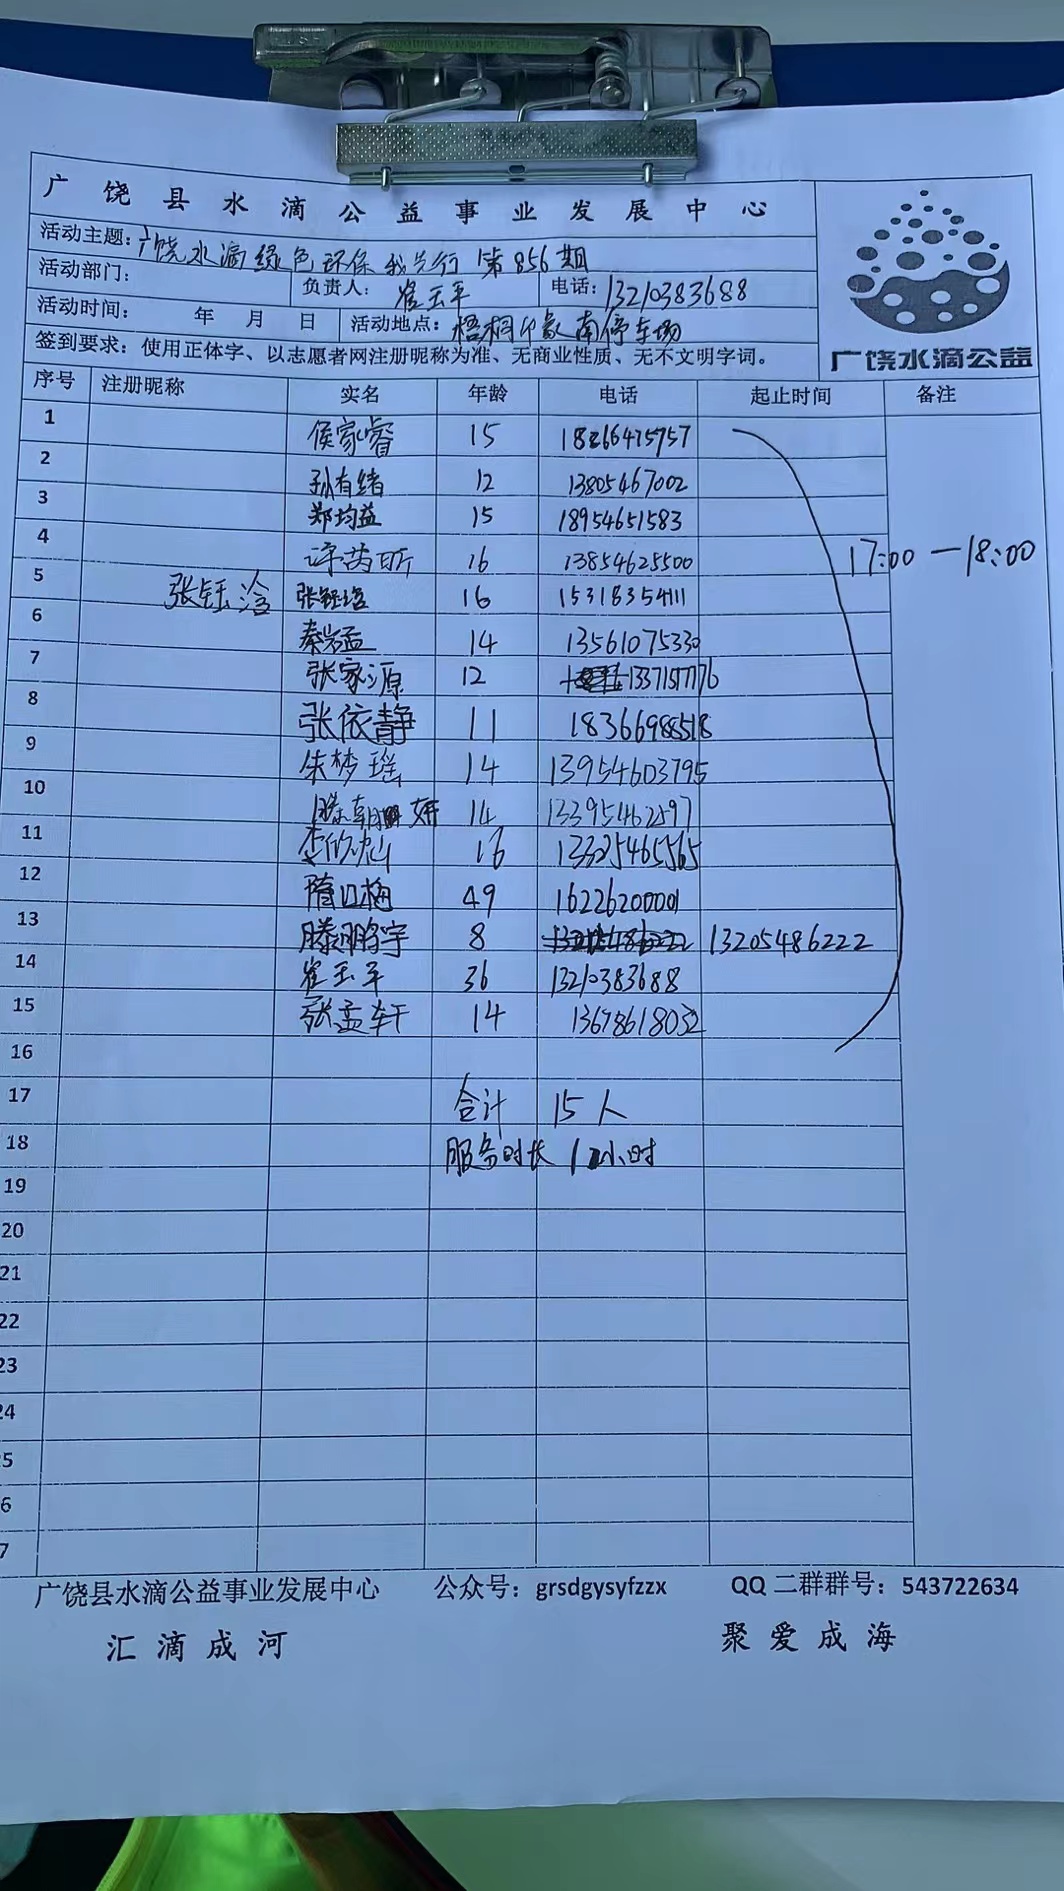 广饶县水滴公益事业发展中心
活动主题：广饶水滴绿色环保我先行 第856期
活动部门： 负责人：崔玉平 电话：13210383688
活动时间： 年 月 日 活动地点：梧桐印象南停车场
签到要求：使用正体字、以志愿者网注册昵称为准、无商业性质、无不文明字词。
广饶水滴公益
序号 注册昵称 实名 年龄 电话 起止时间 备注
1 侯家睿 15 18266475757
2 孙有绪 12 13805467002
3 郑均益 15 18954651583
4 16 13854625500 17:00 — 18:00
5 张钰涵 张钰涵 16 15318354111
6 秦岩孟 14 13561075330
7 张家源 12 13371517776
8 张依静 11 18366988518
9 朱梦瑶 14 13954603795
10 滕朝妍 14 13395462597
11 李欣灿 16 13325465565
12 隋口梅 49 16226200001
13 滕鹏宇 8 13205486222
14 崔玉平 36 13210383688
15 张孟轩 14 13678618052
16
17 合计 15人
18 服务时长 1小时
19
20
21
22
23
24
5
6
7
广饶县水滴公益事业发展中心 公众号：grsdgysyfzzx QQ二群群号：543722634
汇滴成河 聚爱成海